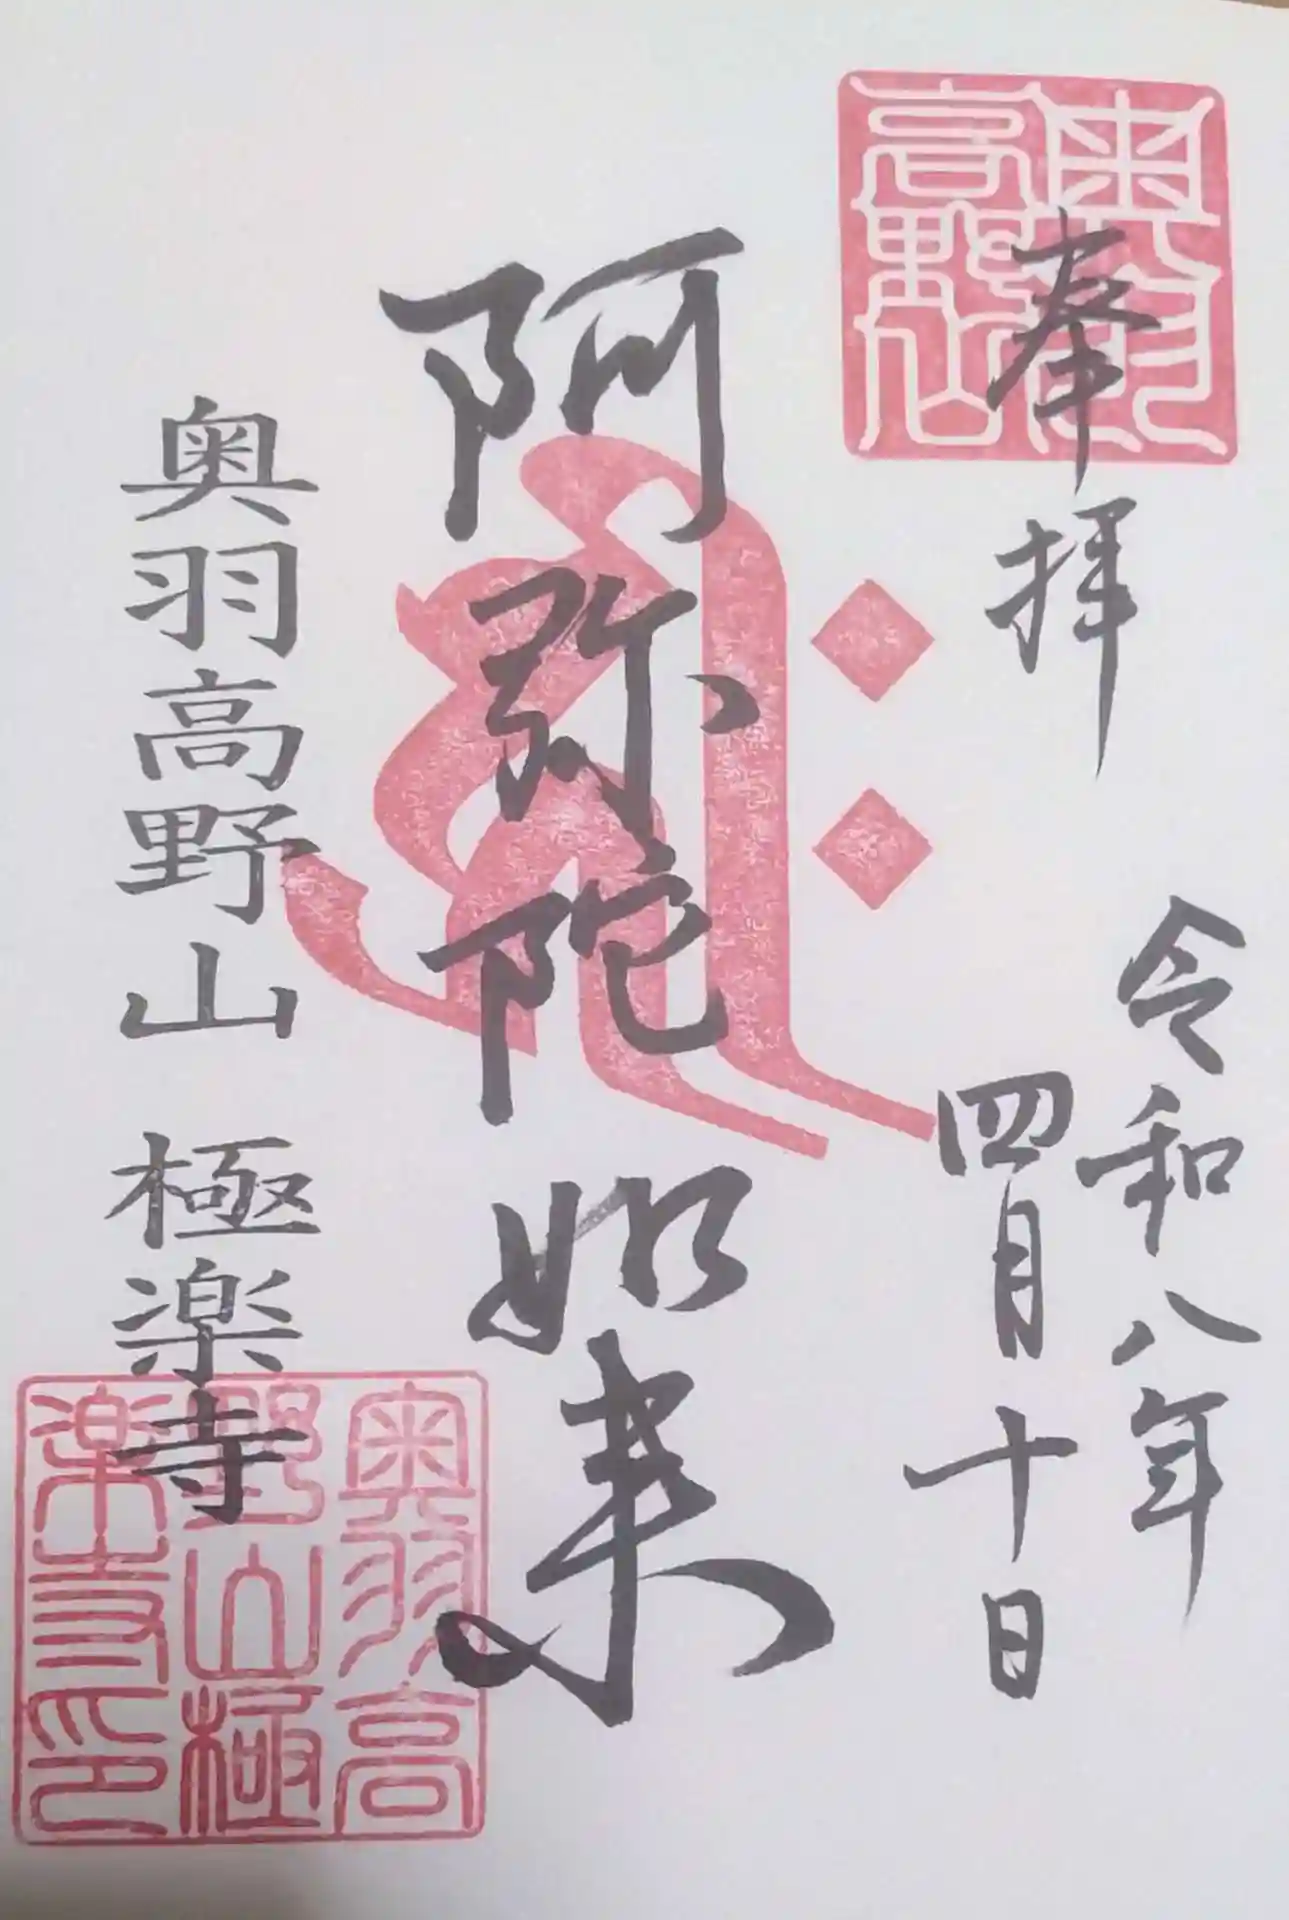 奉拝
令和八年
四月十日
阿弥陀如来
奥羽高野山 極楽寺
奥羽
高野山
奥羽高
野山極
楽寺印